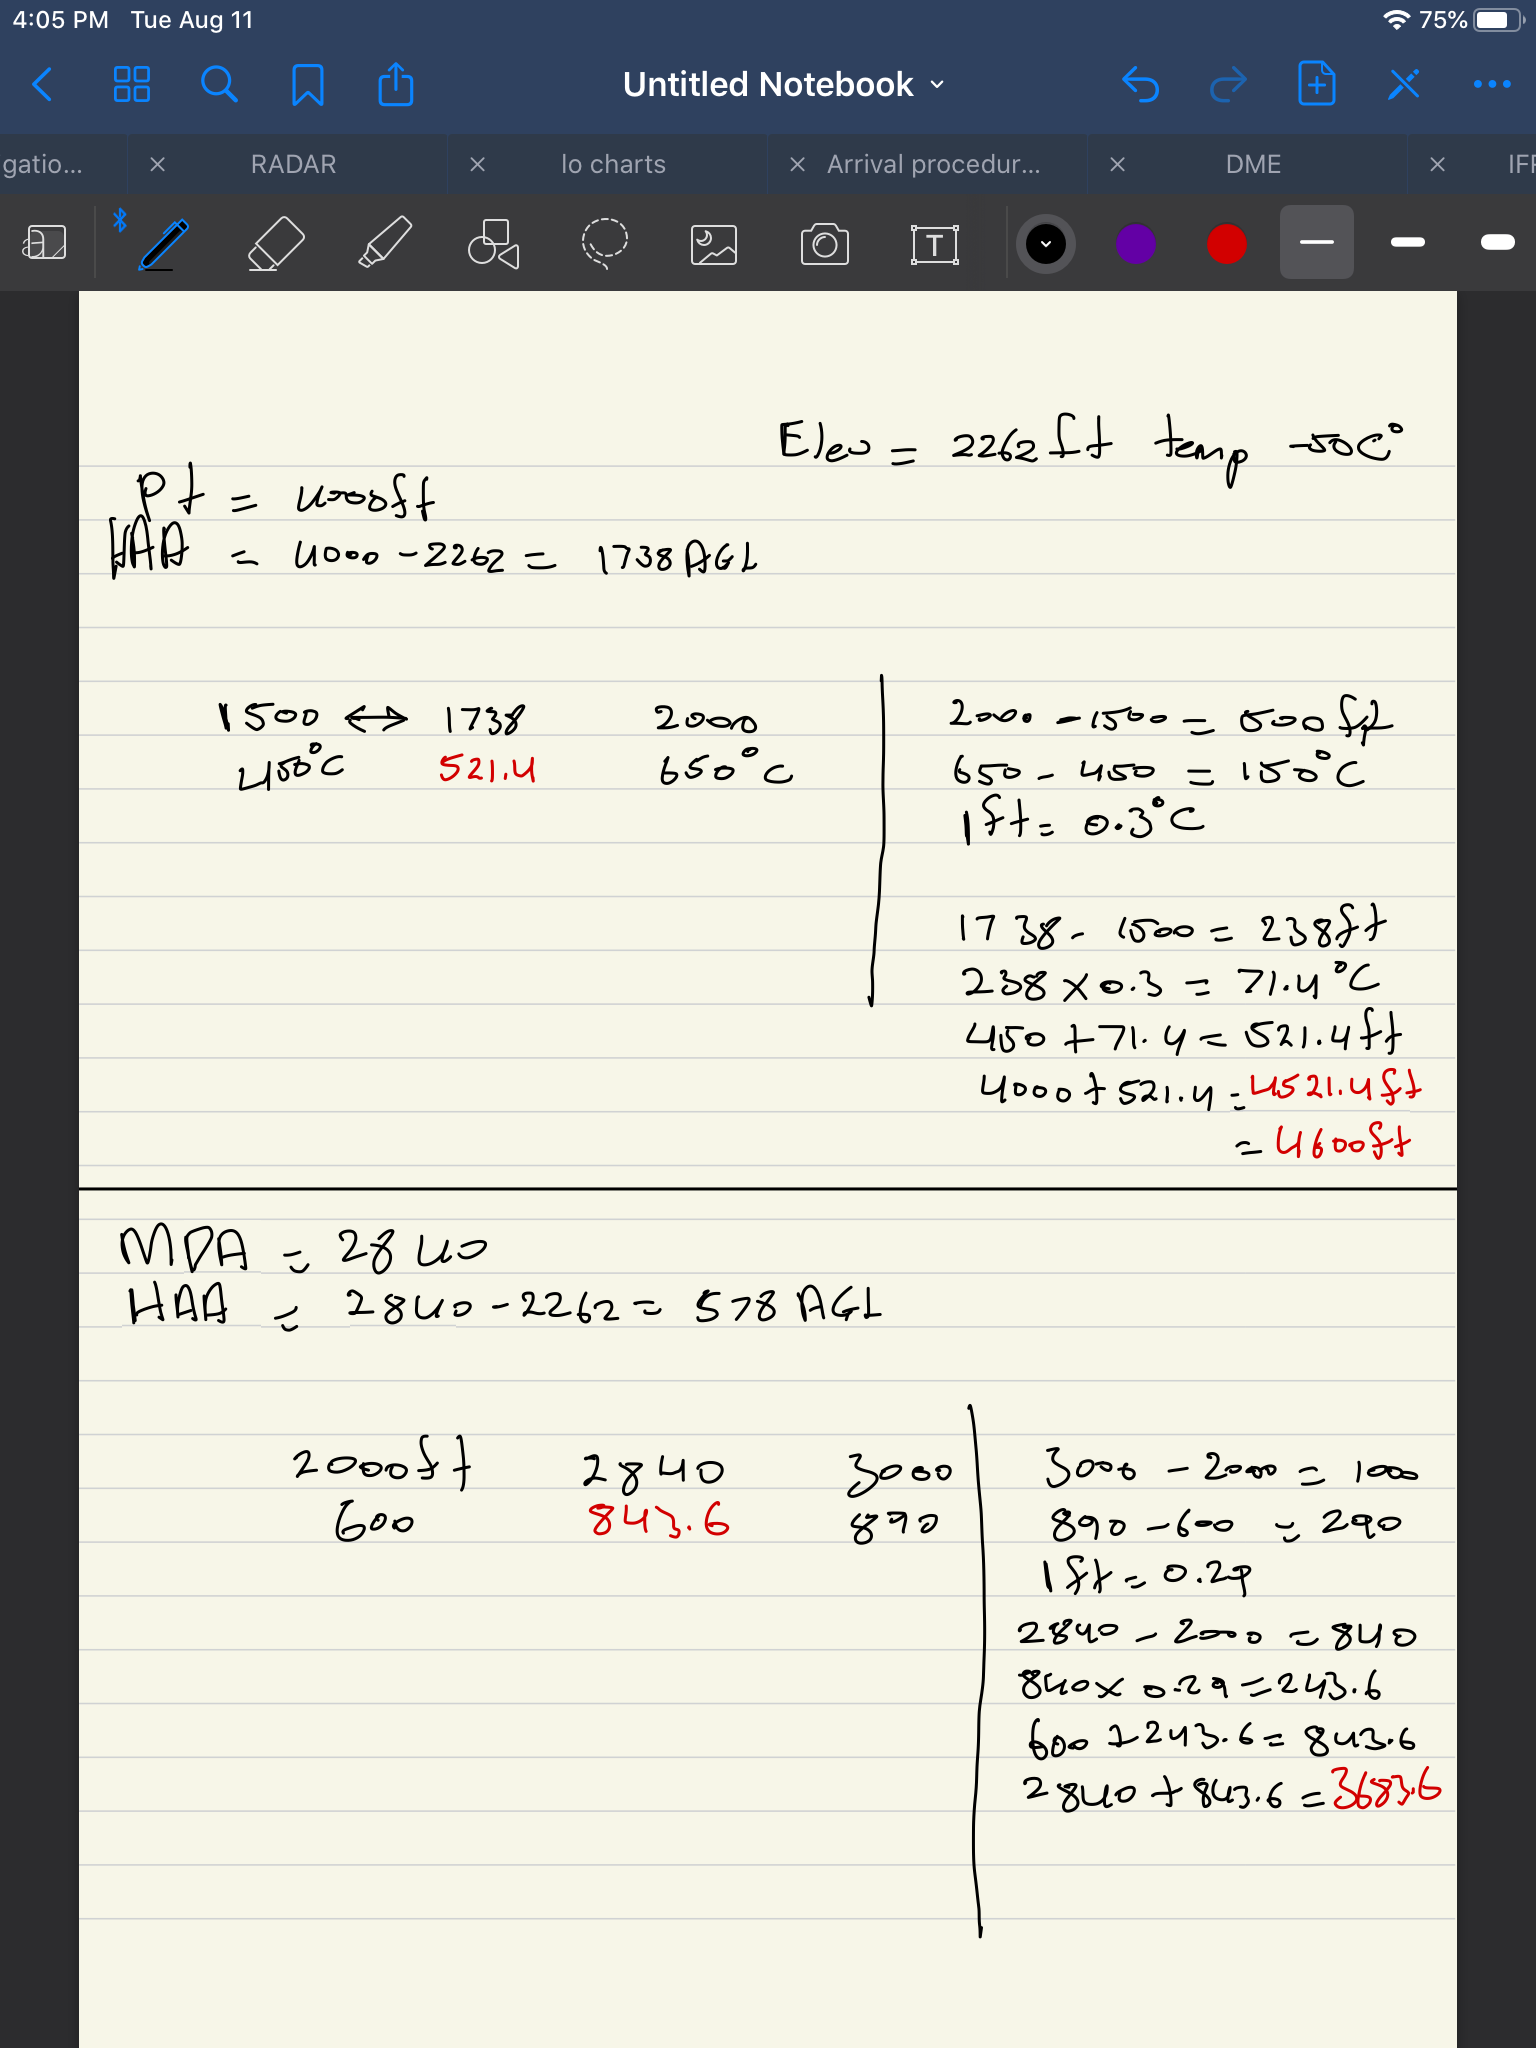 4:05 PM Tue Aug 11 75%
Untitled Notebook
gatio... RADAR lo charts Arrival procedur... DME IFR
T
Elev = 2262 ft temp -50C°
Pt = 4000ft
HAA = 4000 - 2262 = 1738 AGL
1500 ↔ 1738 2000
450°C 521.4 650°C
2000 - 1500 = 500 ft
650 - 450 = 150°C
1ft = 0.3°C
1738 - 1500 = 238ft
238 x 0.3 = 71.4°C
450 + 71.4 = 521.4ft
4000 + 521.4 = 4521.4ft
= 4600ft
MDA = 2840
HAA = 2840 - 2262 = 578 AGL
2000ft 2840 3000
600 843.6 890
3000 - 2000 = 1000
890 - 600 = 290
1ft = 0.29
2840 - 2000 = 840
840 x 0.29 = 243.6
600 + 243.6 = 843.6
2840 + 843.6 = 3683.6